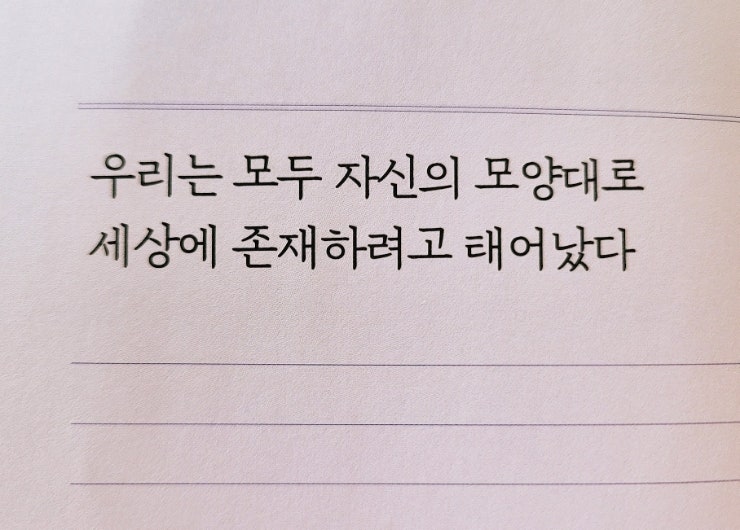 우리는 모두 자신의 모양대로
세상에 존재하려고 태어났다